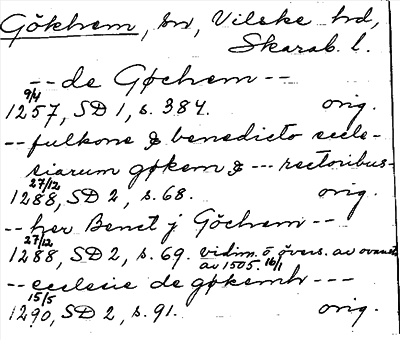 Gökhem, sn, Vilske hd,
Skarab. l.
-- de Gøchem --
9/4
1257, SD 1, s. 384. orig.
-- fulkone & benedicto eccle-
siarum gøkem & --- rectoribus-
27/12
1288, SD 2, s. 68. orig.
-- her Benct j Göchem --
27/12
1288, SD 2, s. 69. vidim. o. övers. av ovanst.
av 1505. 16/1
-- ecclesie de gøkemh ---
15/5
1290, SD 2, s. 91. orig.